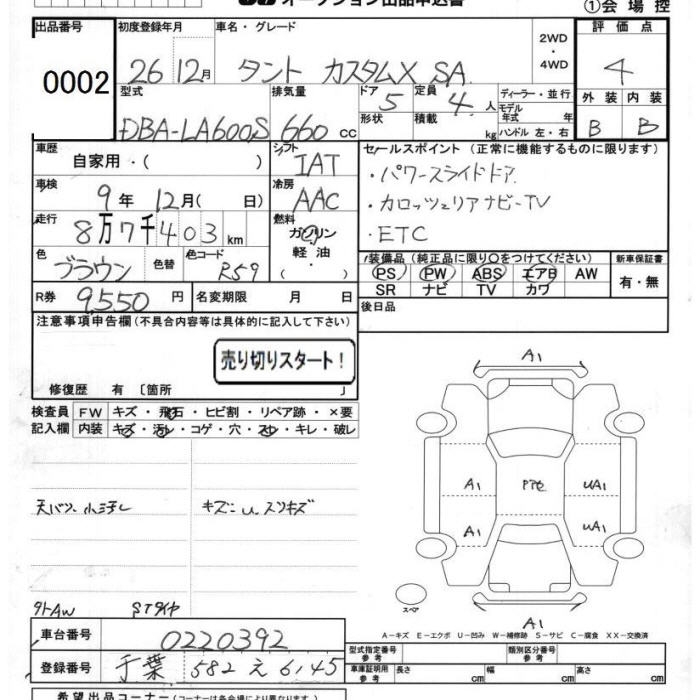 オークション出品申込書
①会場控
出品番号 0002
初度登録年月 26 12月
車名・グレード タント カスタムX SA
2WD・4WD
評価点 4
外装 B 内装 B
型式 DBA-LA600S
排気量 660 cc
ドア 5
形状
定員 4人
積載 kg
ディーラー・並行
モデル年式 年
ハンドル 左・右
車歴 自家用・( )
シフト IAT
車検 9年 12月( 日)
冷房 AAC
走行 8万7千403 km
燃料 ガソリン
軽油
・( )・
色 ブラウン 色替 色コード R59
R券 9,550円 名変期限 月 日
セールスポイント(正常に機能するものに限ります)
・パワースライドドア
・カロッツェリアナビーTV
・ETC
装備品(純正品に限り○をつけてください) 新車保証書
PS PW ABS エアB AW 有・無
SR ナビ TV カワ
後日品
注意事項申告欄(不具合内容等は具体的に記入して下さい)
売り切りスタート!
修復歴 有〔箇所 〕
検査員 FW キズ・飛石・ヒビ割・リペア跡・×要
記入欄 内装 キズ・汚レ・コゲ・穴・スレ・キレ・破レ
キズ小 U スリキズ
外AW STタイヤ
A1
A1 UA1
A1 UA1
A1
スペア
A-キズ E-エクボ U-凹み W-補修跡 S-サビ C-腐食 XX-交換済
車台番号 0220392
登録番号 千葉 582 え 6145
型式指定番号 参考 類別区分番号 参考
車庫証明用 参考 長さ cm 幅 cm 高さ cm
希望出品コーナー(コーナーは各会場により異なります。)